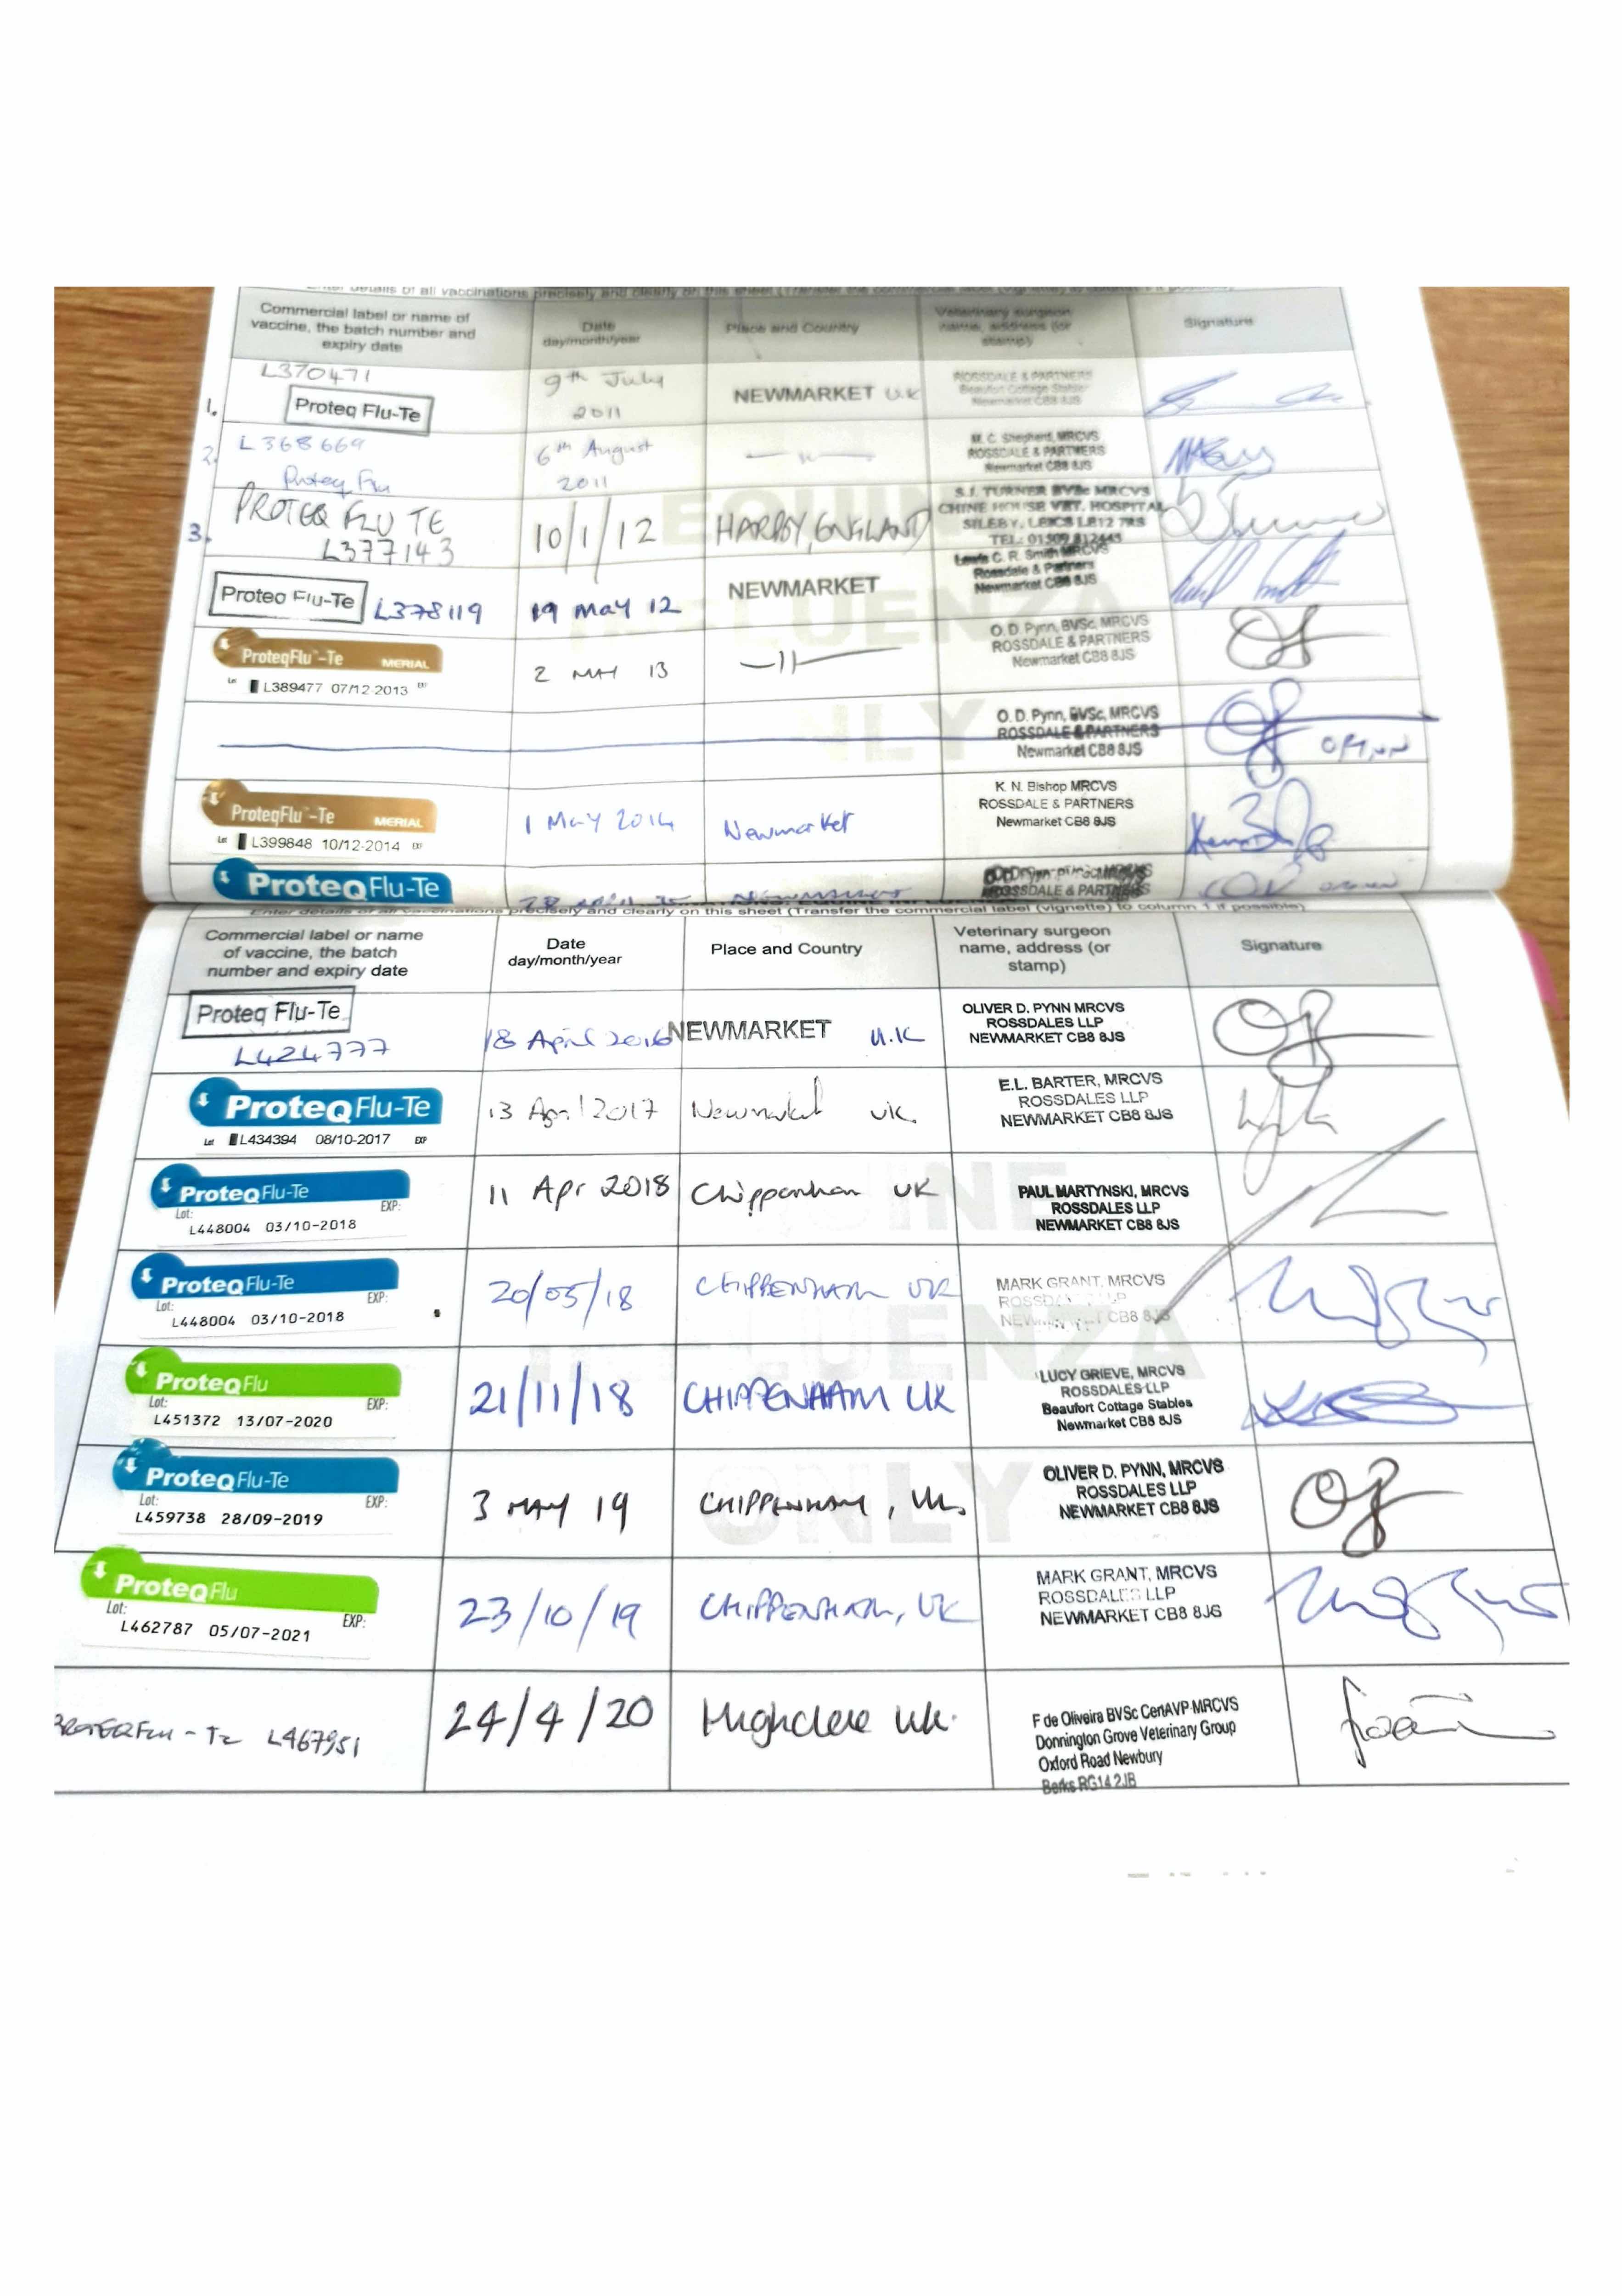 Enter details of all vaccinations precisely and clearly on this sheet (Transfer the commercial label
Commercial label or name of vaccine, the batch number and expiry date
Date day/month/year
Place and Country
Veterinary surgeon name, address (or stamp)
Signature
1.
L370471
Proteq Flu-Te
9th July
2011
NEWMARKET U.K
ROSSDALE & PARTNERS
Beaufort Cottage Stables
Newmarket CB8 8JS
2.
L368669
Proteq Flu
6th August
2011
— " —
M. C. Shepherd, MRCVS
ROSSDALE & PARTNERS
Newmarket CB8 8JS
3.
PROTEQ FLU TE
L377143
10/1/12
HARBY, ENGLAND
S.J. TURNER BVSc MRCVS
CHINE HOUSE VET. HOSPITAL
SILEBY, LEICS LE12 7RS
TEL: 01509 812445
Proteq Flu-Te L378119
19 May 12
NEWMARKET
Lewis C. R. Smith MRCVS
Rossdale & Partners
Newmarket CB8 8JS
ProteqFlu™-Te MERIAL
Lot L389477 07/12-2013 EXP
2 MAY 13
— " —
O. D. Pynn, BVSc, MRCVS
ROSSDALE & PARTNERS
Newmarket CB8 8JS
O. D. Pynn, BVSc, MRCVS
ROSSDALE & PARTNERS
Newmarket CB8 8JS
ProteqFlu™-Te MERIAL
Lot L399848 10/12-2014 EXP
1 May 2014
Newmarket
K. N. Bishop MRCVS
ROSSDALE & PARTNERS
Newmarket CB8 8JS
ProteqFlu-Te
NEWMARKET
ROSSDALE & PARTNERS
EQUINE
INFLUENZA
ONLY
Enter details of all vaccinations precisely and clearly on this sheet (Transfer the commercial label (vignette) to column 1 if possible)
Commercial label or name of vaccine, the batch number and expiry date
Date day/month/year
Place and Country
Veterinary surgeon name, address (or stamp)
Signature
Proteq Flu-Te
L424777
18 April 2016
NEWMARKET U.K
OLIVER D. PYNN MRCVS
ROSSDALES LLP
NEWMARKET CB8 8JS
ProteqFlu-Te
Lot L434394 08/10-2017 EXP
13 April 2017
Newmarket UK.
E.L. BARTER, MRCVS
ROSSDALES LLP
NEWMARKET CB8 8JS
ProteqFlu-Te
Lot: EXP:
L448004 03/10-2018
11 Apr 2018
Chippenham UK
PAUL MARTYNSKI, MRCVS
ROSSDALES LLP
NEWMARKET CB8 8JS
ProteqFlu-Te
Lot: EXP:
L448004 03/10-2018
20/05/18
CHIPPENHAM UK
MARK GRANT, MRCVS
ROSSDALES LLP
NEWMARKET CB8 8JS
ProteqFlu
Lot: EXP:
L451372 13/07-2020
21/11/18
CHIPPENHAM UK
LUCY GRIEVE, MRCVS
ROSSDALES LLP
Beaufort Cottage Stables
Newmarket CB8 8JS
ProteqFlu-Te
Lot: EXP:
L459738 28/09-2019
3 MAY 19
CHIPPENHAM, UK.
OLIVER D. PYNN, MRCVS
ROSSDALES LLP
NEWMARKET CB8 8JS
ProteqFlu
Lot: EXP:
L462787 05/07-2021
23/10/19
CHIPPENHAM, UK
MARK GRANT, MRCVS
ROSSDALES LLP
NEWMARKET CB8 8JS
PROTEQFLU-Te L467951
24/4/20
Highclere UK.
F de Oliveira BVSc CertAVP MRCVS
Donnington Grove Veterinary Group
Oxford Road Newbury
Berks RG14 2JB
EQUINE
INFLUENZA
ONLY